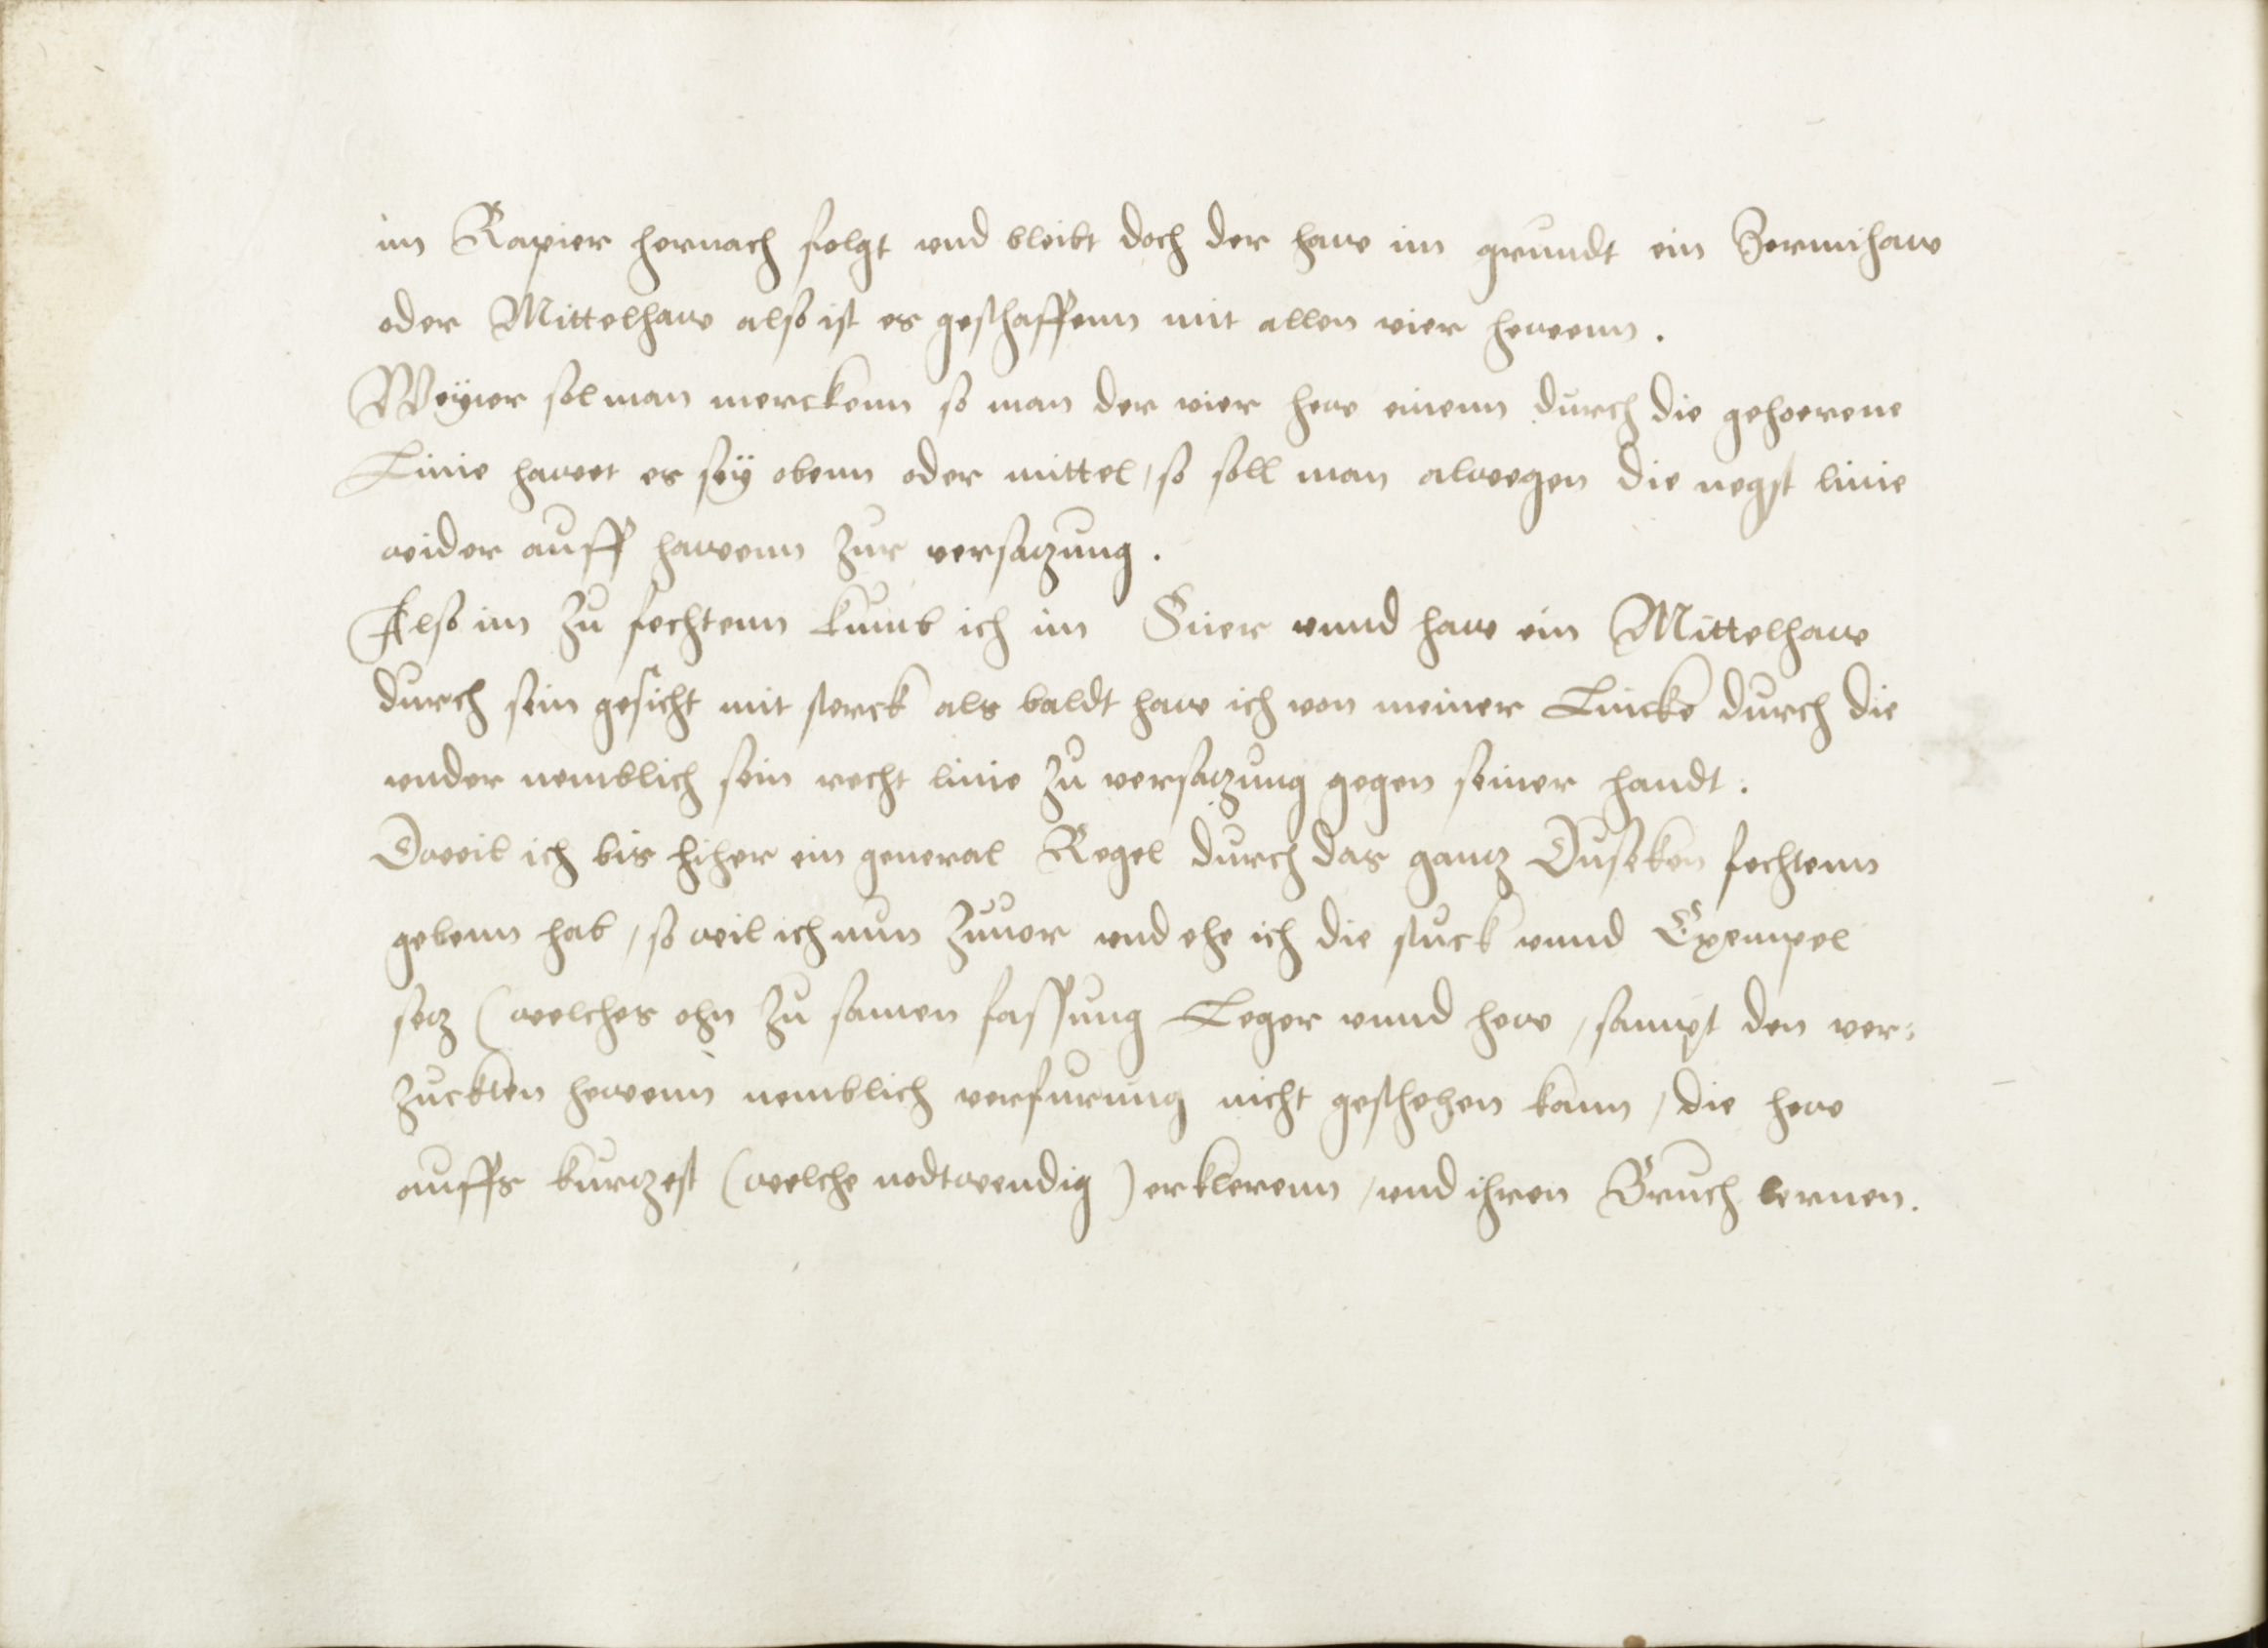 im Rapier hernach folgt vnd bleibt doch der haw im grundt ein Zornhaw
oder Mittelhaw also ist es geschaffenn mit allen vier hewenn.
Weÿter sol man merckenn so man der vier hew einenn durch die gehoerene
Linie hawet es seÿ obenn oder mittel, so soll man alwegen die negst linie
wider auff hawenn zur versatzung.
Also im zu fechtenn kumb ich im Stier vnnd haw ein Mittelhaw
durch sein gesicht mit sterck als baldt haw ich von meiner Lincke durch die
vnder nemblich sein recht linie zu versatzung gegen seiner handt.
Dweil ich bis hiher ein general Regel durch das gantz Duseken fechtenn
gebenn hab, so weil ich nun zuuor vnd ehe ich die stuck vnnd Exempel
setz (welches ohn zu samen fassung Leger vnnd hew, sampt den ver:
zuckten hewenn nemblich verfurung nicht geschehen kann, die hew
auffs kurtzest (welche nodtwendig) erklerenn, vnd ihren Bruch lernen.